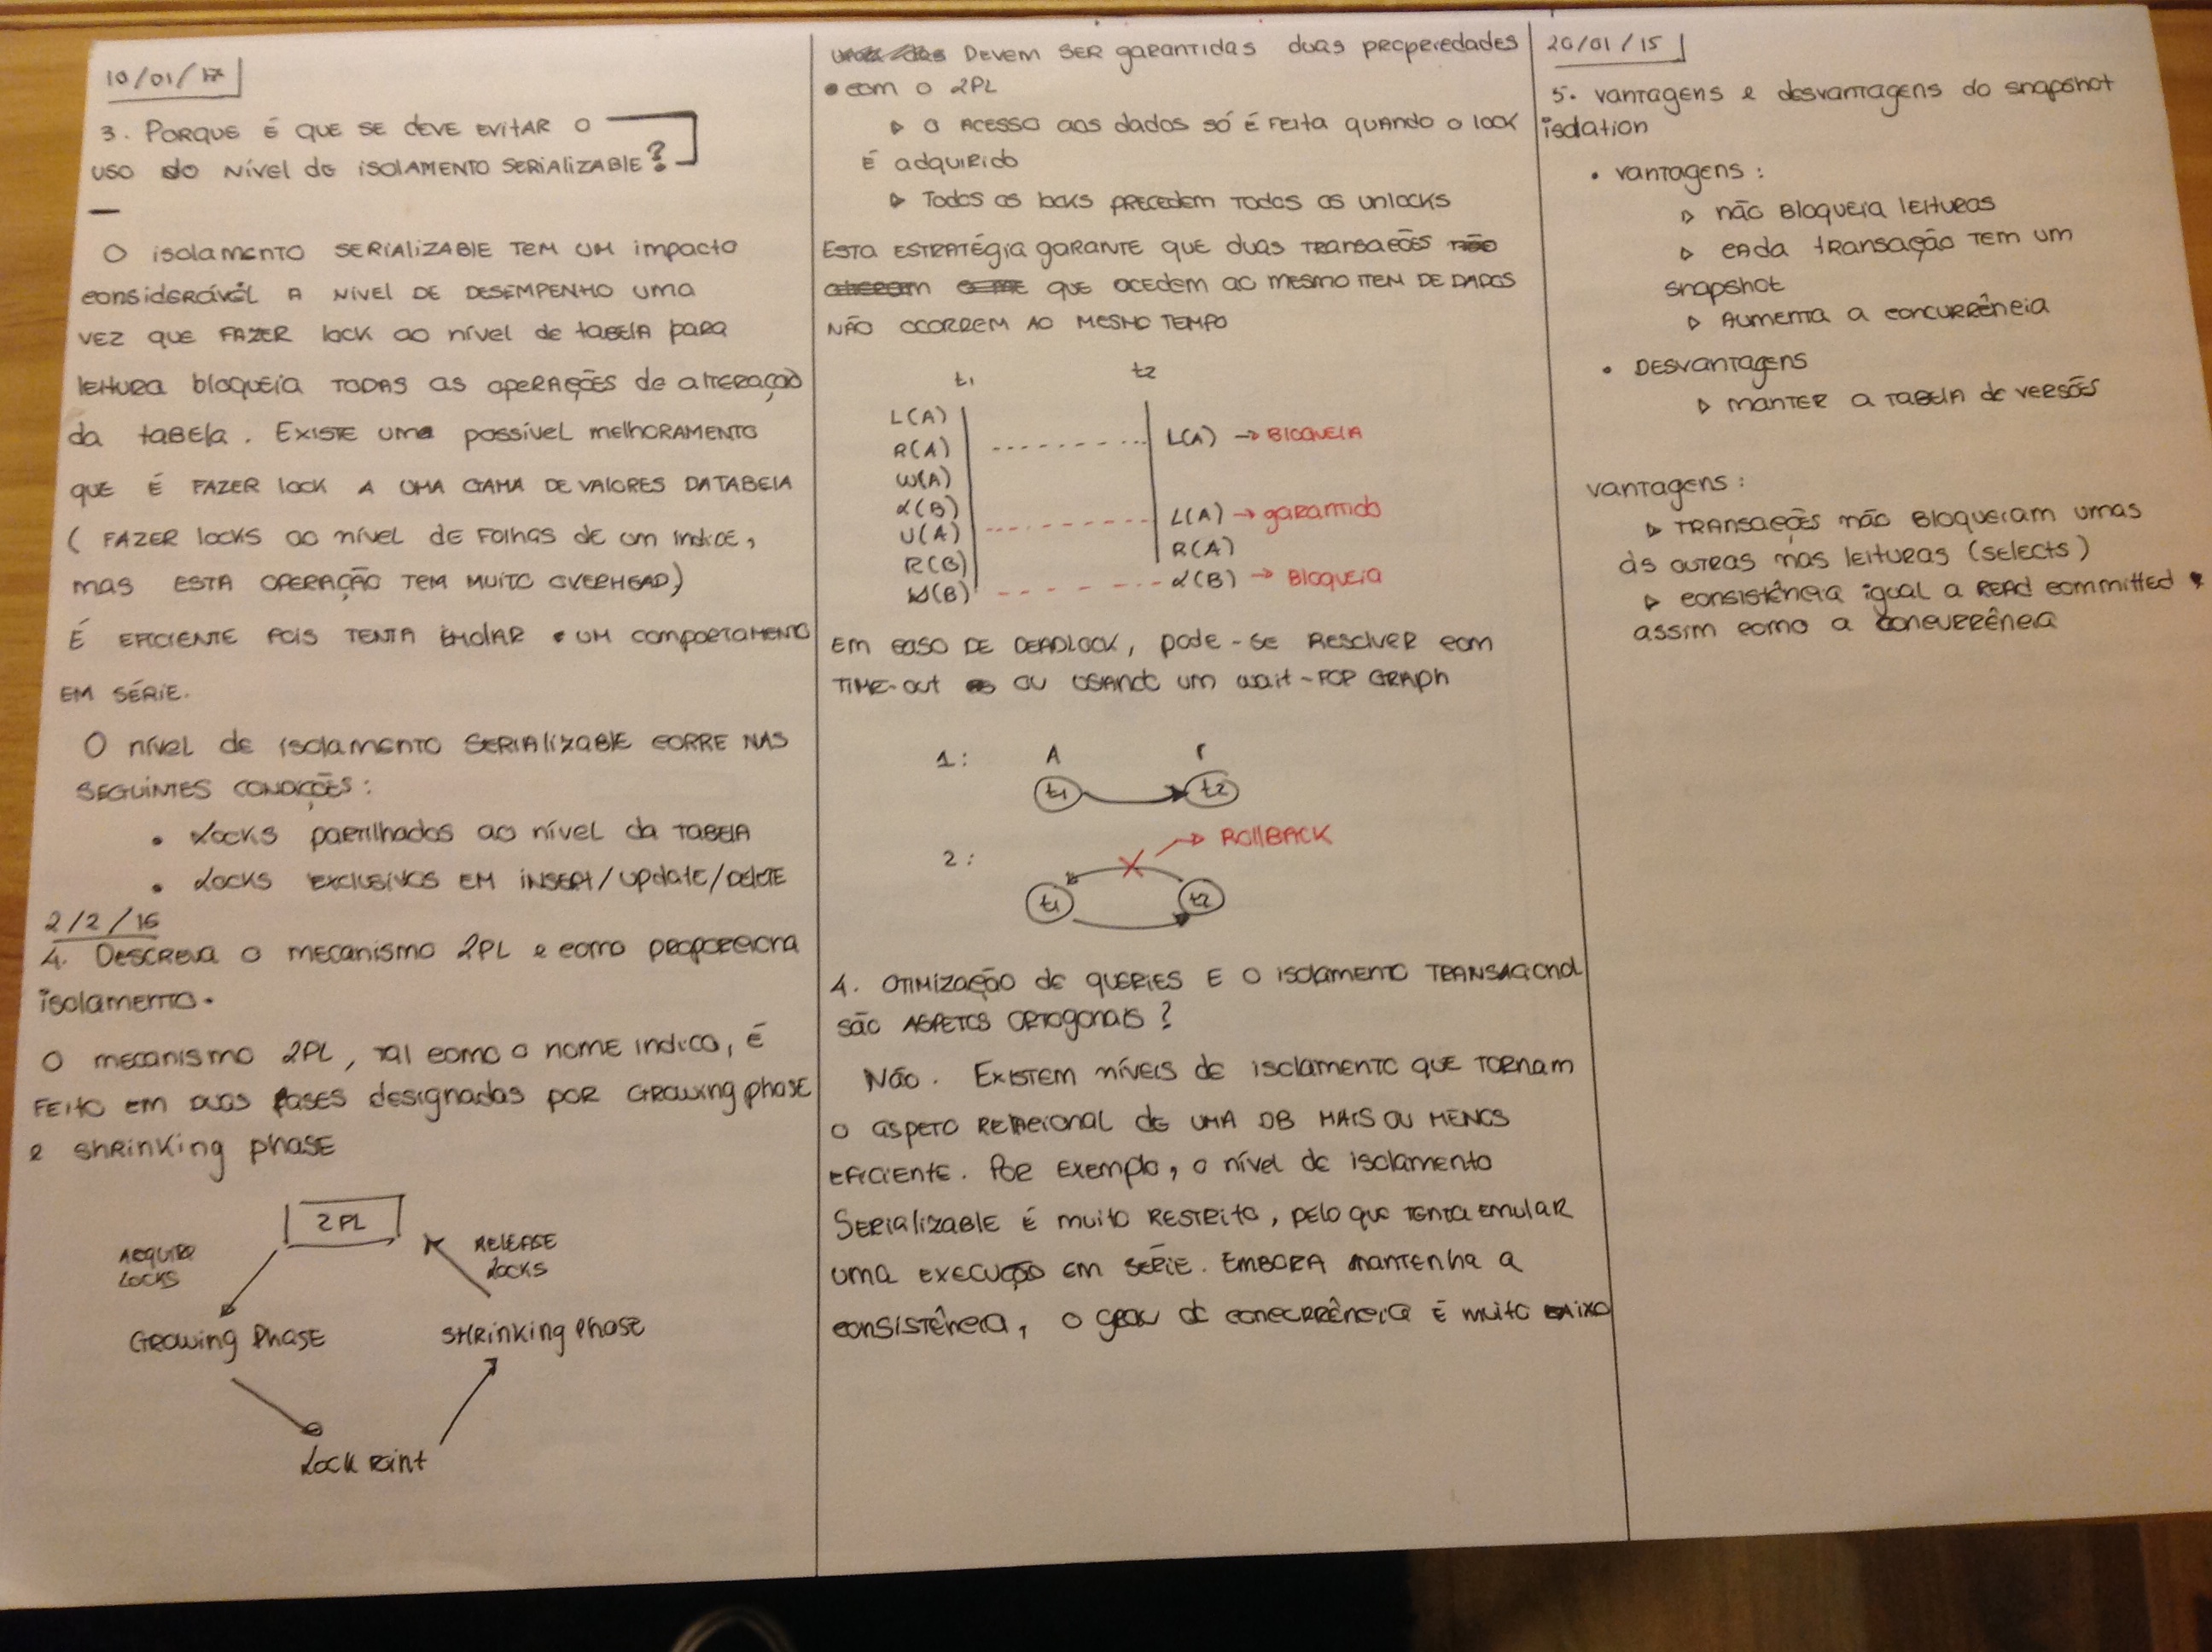 10/01/17
3. Porque é que se deve evitar o
uso do nível de isolamento serializable?
O isolamento serializable tem um impacto
considerável a nível de desempenho uma
vez que fazer lock ao nível de tabela para
leitura bloqueia todas as operações de alteração
da tabela. Existe uma possível melhoramento
que é fazer lock a uma gama de valores da tabela
(fazer locks ao nível de folhas de um indice,
mas esta operação tem muito overhead)
É eficiente pois tenta emolar um comportamento
em série.
O nível de isolamento serializable corre nas
seguintes condições:
• Locks partilhados ao nível da tabela
• Locks exclusivos em insert/update/delete
2/2/16
4. Descreva o mecanismo 2PL e como proporciona
isolamento.
O mecanismo 2PL, tal como o nome indica, é
feito em duas fases designadas por Growing phase
e shrinking phase
2PL
Acquire
Locks
Release
Locks
Growing Phase
Shrinking Phase
Lock Point
Devem ser garantidas duas propriedades
com o 2PL
▷ O acesso aos dados só é feita quando o lock
é adquirido
▷ Todos os locks precedem todos os unlocks
Esta estratégia garante que duas transações não
que acedem ao mesmo item de dados
não ocorrem ao mesmo tempo
t1 t2
L(A)
R(A) L(A) → Bloqueia
W(A)
L(B) L(A) → garantido
U(A)
R(B) R(A)
W(B) L(B) → Bloqueia
Em caso de deadlock, pode-se resolver com
time-out ou usando um wait-for graph
1: A
t1 t2
→ Rollback
2:
t1 t2
4. Otimização de queries e o isolamento transacional
são aspetos ortogonais?
Não. Existem níveis de isolamento que tornam
o aspeto relacional de uma DB mais ou menos
eficiente. Por exemplo, o nível de isolamento
Serializable é muito restrito, pelo que tenta emular
uma execução em série. Embora mantenha a
consistência, o grau de concurrência é muito baixo
20/01/15
5. vantagens e desvantagens do snapshot
isolation
• vantagens:
▷ não bloqueia leituras
▷ cada transação tem um
snapshot
▷ Aumenta a concurrência
• Desvantagens
▷ manter a tabela de versões
vantagens:
▷ Transações não bloqueiam umas
às outras nas leituras (selects)
▷ consistência igual a read committed
assim como a concurrência